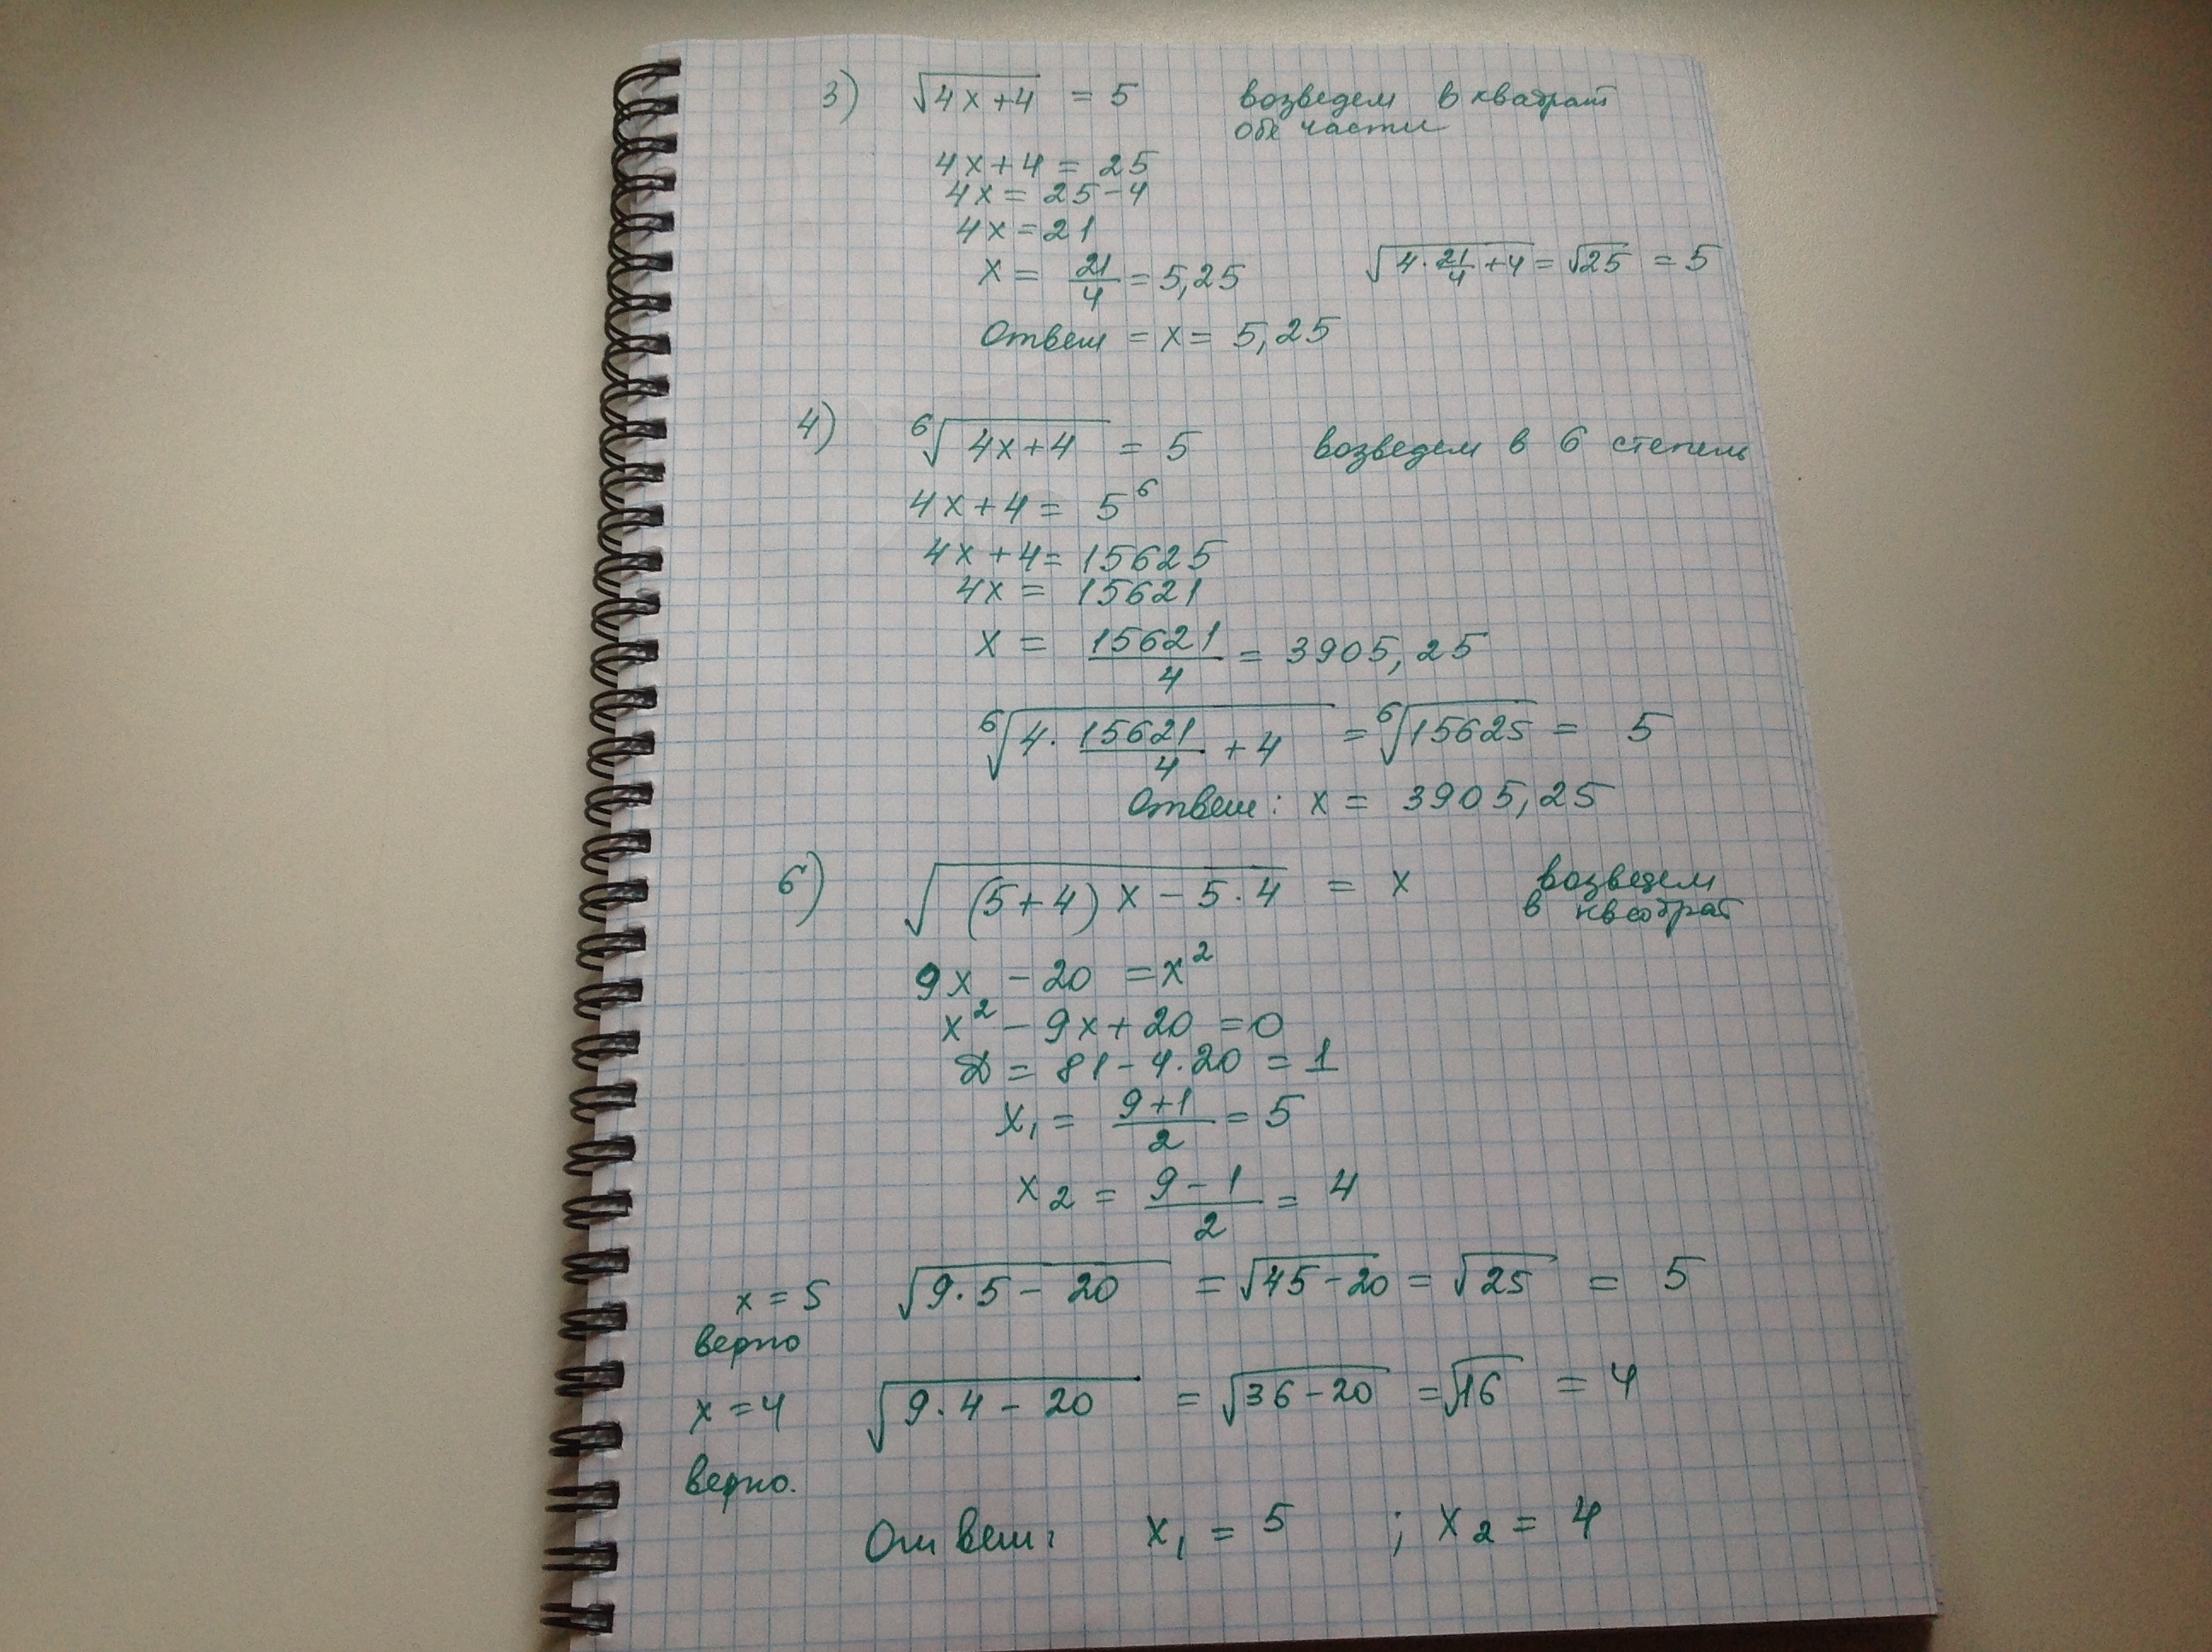 3) √(4x+4) = 5 возведем в квадрат
обе части
4x+4 = 25
4x = 25-4
4x = 21
x = 21/4 = 5,25 √(4·21/4+4) = √25 = 5
Ответ = x = 5,25
4) ⁶√(4x+4) = 5 возведем в 6 степень
4x+4 = 5⁶
4x+4 = 15625
4x = 15621
x = 15621/4 = 3905,25
⁶√(4·15621/4+4) = ⁶√15625 = 5
Ответ: x = 3905,25
6) √((5+4)x-5·4) = x возведем
в квадрат
9x - 20 = x²
x² - 9x + 20 = 0
D = 81 - 4·20 = 1
x₁ = (9+1)/2 = 5
x₂ = (9-1)/2 = 4
x = 5 √(9·5-20) = √(45-20) = √25 = 5
верно
x = 4 √(9·4-20) = √(36-20) = √16 = 4
верно.
Ответ: x₁ = 5 ; x₂ = 4